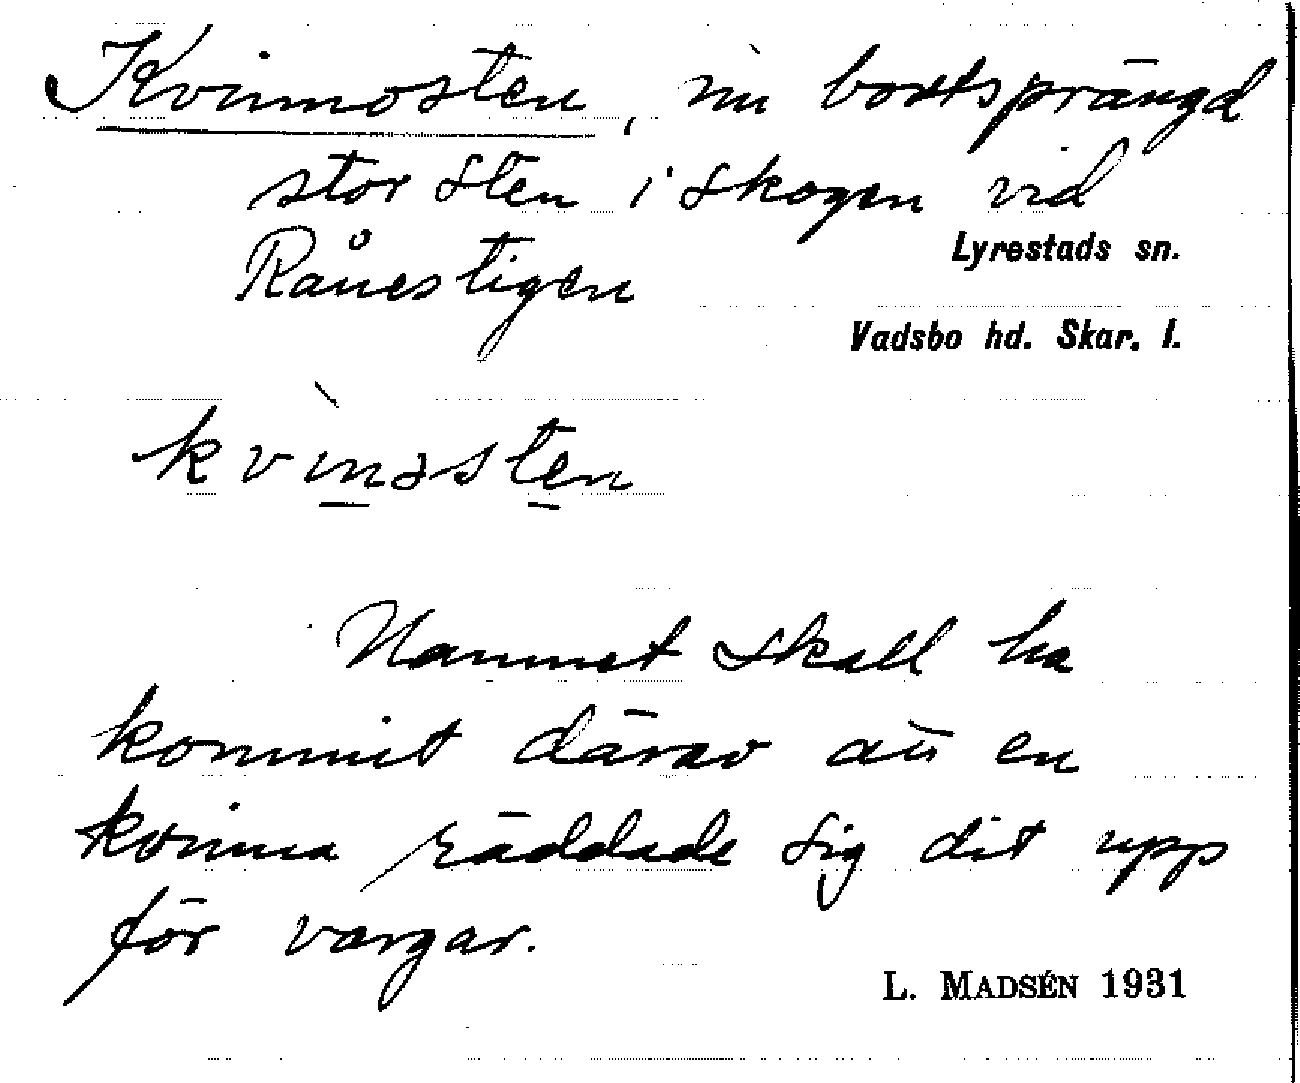 Kvinnosten, nu bortsprängd
stor sten i skogen vid
Rånestigen
Lyrestads sn.
Vadsbo hd. Skar. l.
kvìnəsten
Namnet skall ha
kommit därav att en
kvinna räddade sig dit upp
för vargar.
L. MADSÉN 1931